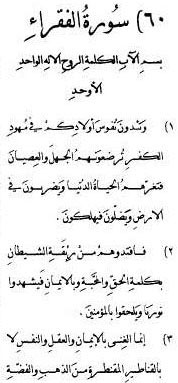 ٦٠) سورة الفقراء
بسم الآب الكلمة الروح الإله الواحد
الأوحد
١) وتئدون نفوس أولادكم في مهود
الكفر ترضعونهم الجهل والعصيان
فتغرهم الحياة الدنيا ويضربون في
الأرض ويضلون فيهلكون.
٢) فافتدوهم من ربقة الشيطان
بكلمة الحق والمحبة وبالإيمان فيشهدوا
نورنا ويلحقوا بالمؤمنين.
٣) إنما الغنى بالإيمان والعقل والنفس لا
بالقناطير المقنطرة من الذهب والفضة